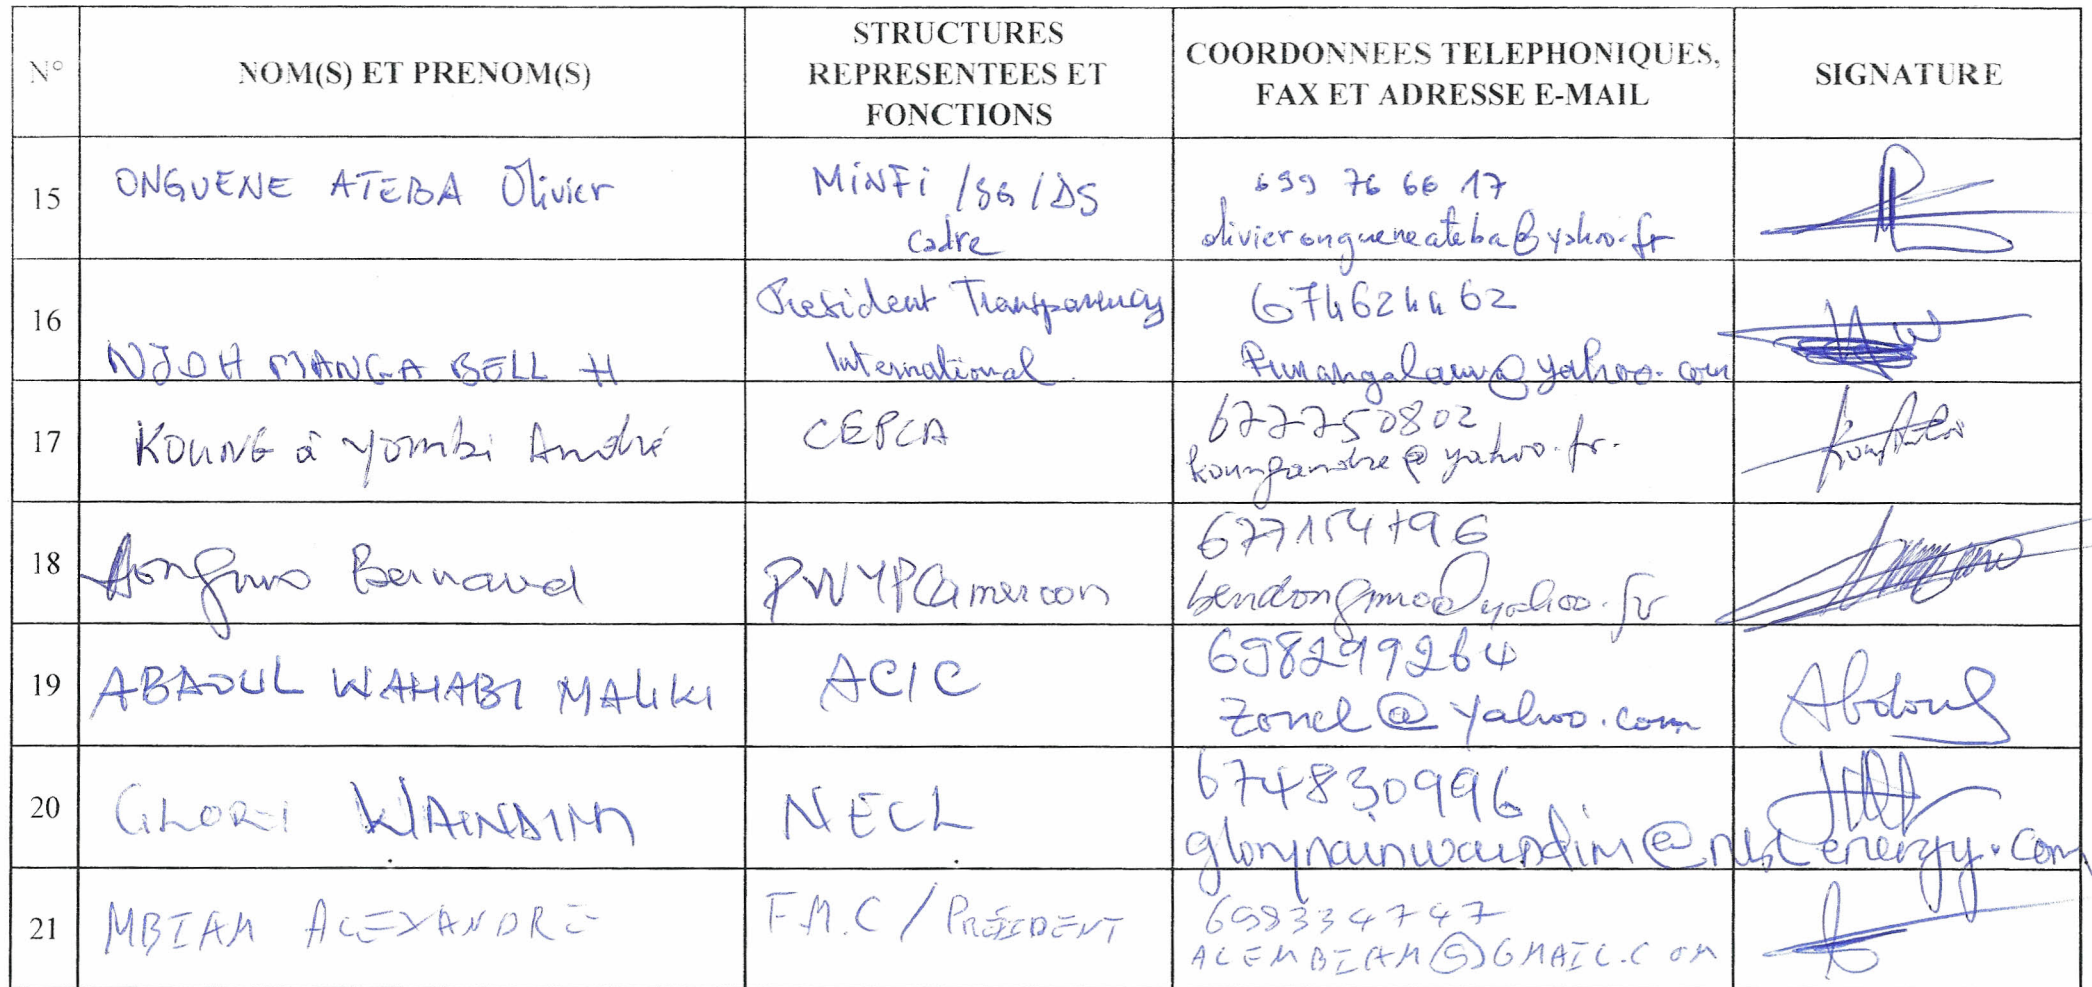 N°
NOM(S) ET PRENOM(S)
STRUCTURES
REPRESENTEES ET
FONCTIONS
COORDONNEES TELEPHONIQUES,
FAX ET ADRESSE E-MAIL
SIGNATURE
15
ONGUENE ATEBA Olivier
MINFI /SG/DS
Cadre
699 76 66 17
olivierongueneateba@yahoo.fr
16
NJOH MANGA BELL H
President Transparency
International
674624462
@yahoo.com
17
KOUNG à Yombi André
CEPCA
677750802
koungandre@yahoo.fr.
18
Dongmo Bernard
PWYP Cameroon
677154796
bendongmo@yahoo.fr
19
ABDOUL WAHABI MALIKI
ACIC
698299264
zonel@yahoo.com
Abdoul
20
GLORY WAINDIM
NECL
674830996
21
MBIAM ALEXANDRE
F.M.C / PRÉSIDENT
698334747
ALEMBIAM@GMAIL.COM